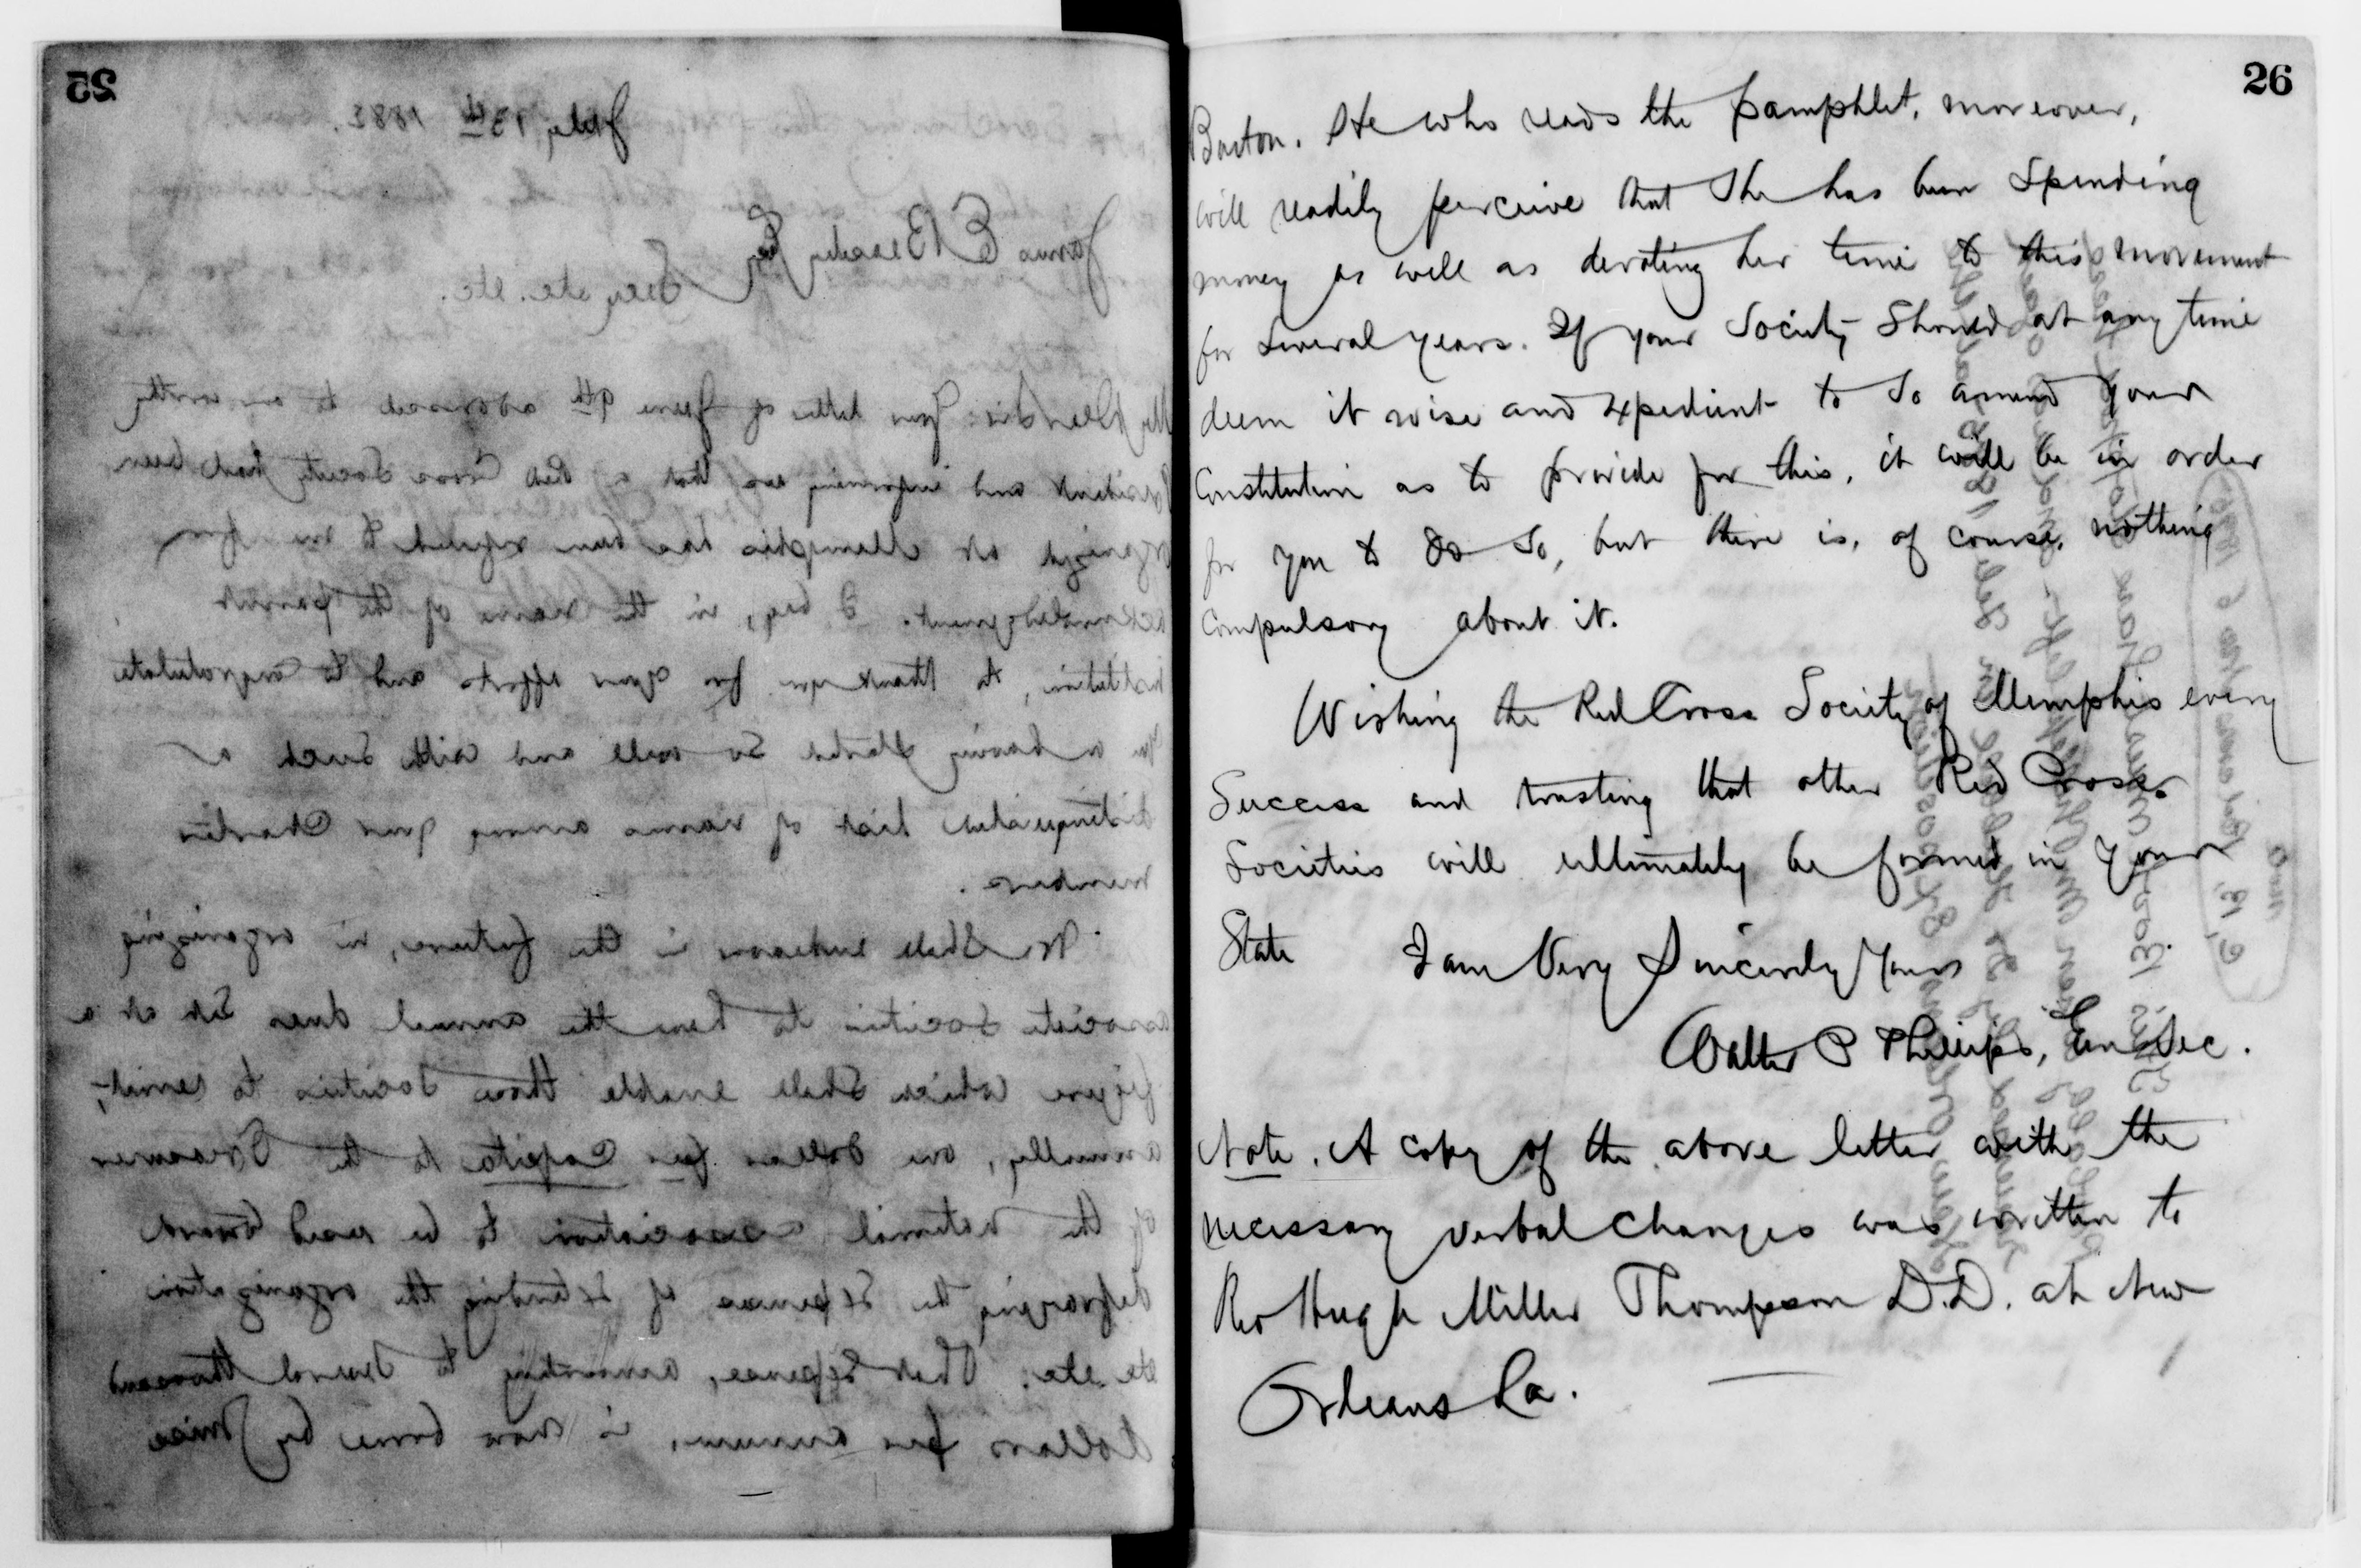 25
July 13th 1882.
James E Beasley Esq
Secy etc. etc.
My Dear Sir: Your letter of June 9th addressed to our worthy
President and informing us that a Red Cross Society had been
organized at Memphis has been referred to me for
acknowledgement. I beg, in the name of the parent
institution, to thank you for your efforts and to congratulate
you on having started so well and with such a
distinguished list of names among your Charter
members.
We shall endeavor in the future, in organizing
associate Societies to have the annual dues set at a
figure which shall enable those Societies to remit,
annually, one dollar per capita to the Treasurer
of the national association to be used toward
defraying the expenses of extending the organization
etc etc. That expense, amounting to several thousand
dollars per annum, is now borne by Miss
26
Barton. He who reads the pamphlet, moreover,
will readily perceive that She has been Spending
money as well as devoting her time to this movement
for Several years. If your Society Should at any time
deem it wise and expedient to So amend your
Constitution as to provide for this, it will be in order
for you to do So, but there is, of course, nothing
Compulsory about it.
Wishing the Red Cross Society of Memphis every
Success and trusting that other Red Cross
Societies will ultimately be formed in your
State I am Very Sincerely Yours
Walter P Phillips, Gen Sec.
Note. A copy of the above letter with the
necessary verbal changes was written to
Rev Hugh Miller Thompson D.D. at New
Orleans La.